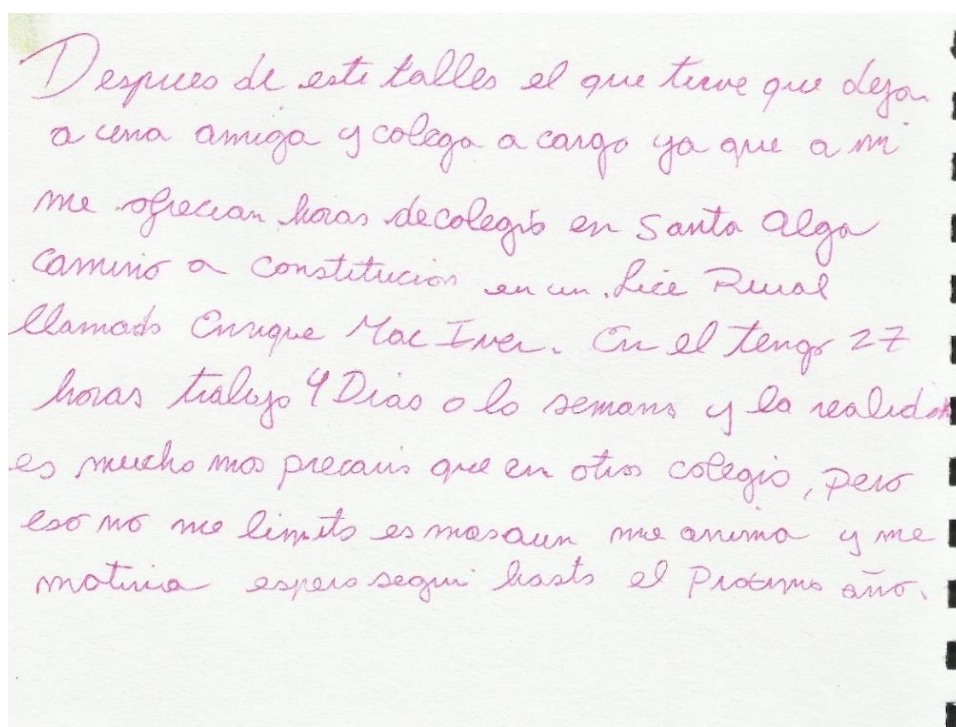 Despues de este taller el que tuve que dejar
a una amiga y colega a cargo ya que a mi
me ofrecian horas de colegio en Santa Olga
camino a constitucion en un Lice Rural
llamado Enrique Mac Iver. En el tengo 27
horas trabajo 4 Dias a la semana y la realidad
es mucho mas precaria que en otros colegio, pero
eso no me limita es mas aun me anima y me
motiva espero segui hasta el Proximo año.